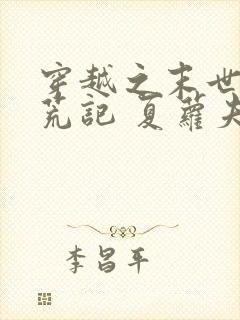 穿越之末世
荒記 夏蘿夫
李昌平